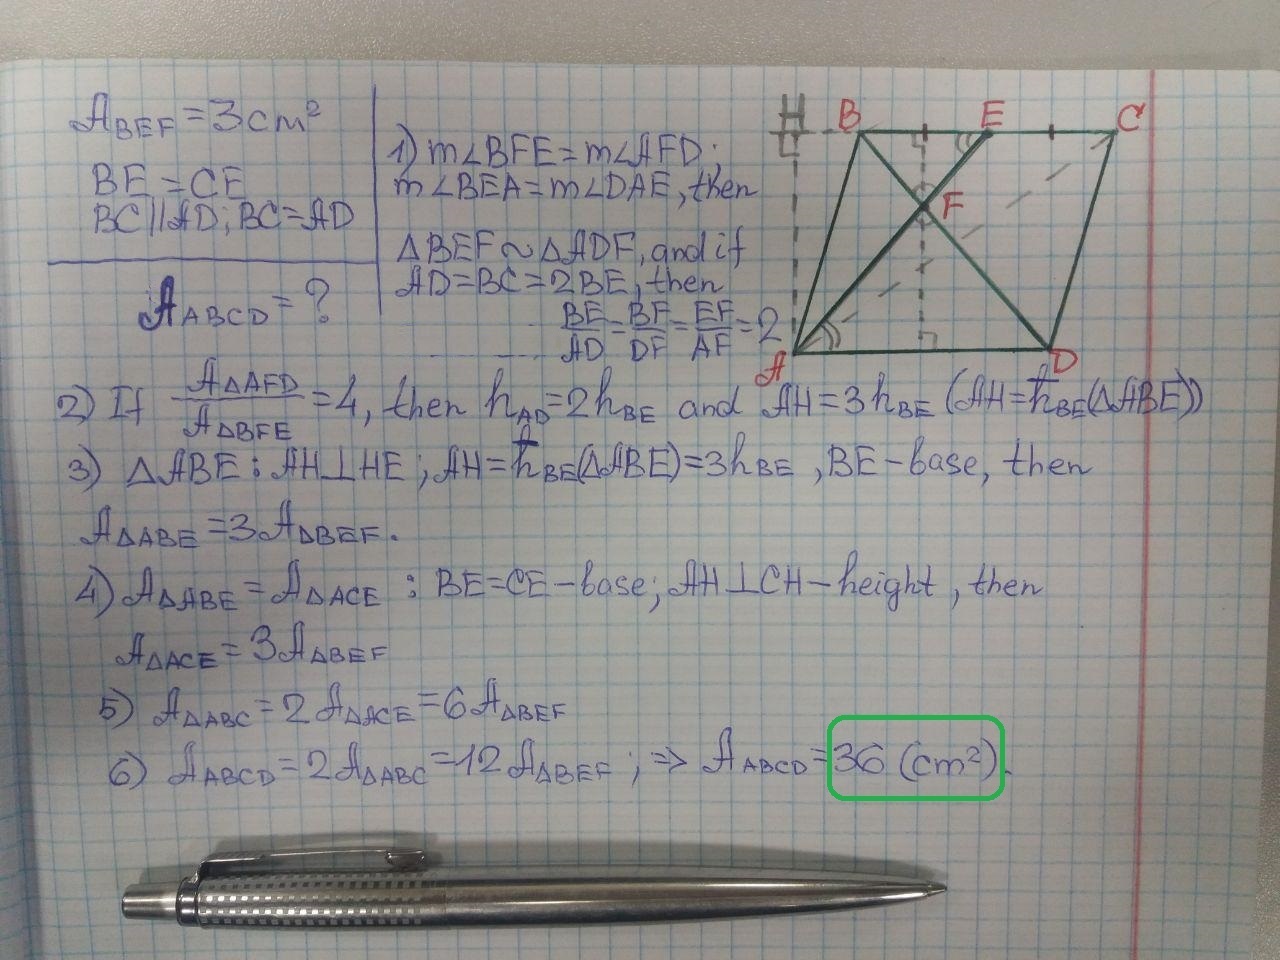 A_BEF = 3 cm²
BE = CE
BC || AD; BC = AD
A_ABCD = ?
1) m∠BFE = m∠AFD;
m∠BEA = m∠DAE, then
△BEF ~ △ADF, and if
AD = BC = 2BE, then
BE/AD = BF/DF = EF/AF = 2
H B E C
F
A D
2) If A△AFD/A△BFE = 4, then h_AD = 2h_BE and AH = 3h_BE (AH = h_BE(△ABE))
3) △ABE : AH⊥HE ; AH = h_BE(△ABE) = 3h_BE , BE - base, then
A△ABE = 3A△BEF.
4) A△ABE = A△ACE : BE = CE - base; AH⊥CH - height, then
A△ACE = 3A△BEF
5) A△ABC = 2A△ACE = 6A△BEF
6) A_ABCD = 2A△ABC = 12A△BEF ; => A_ABCD = 36 (cm²).